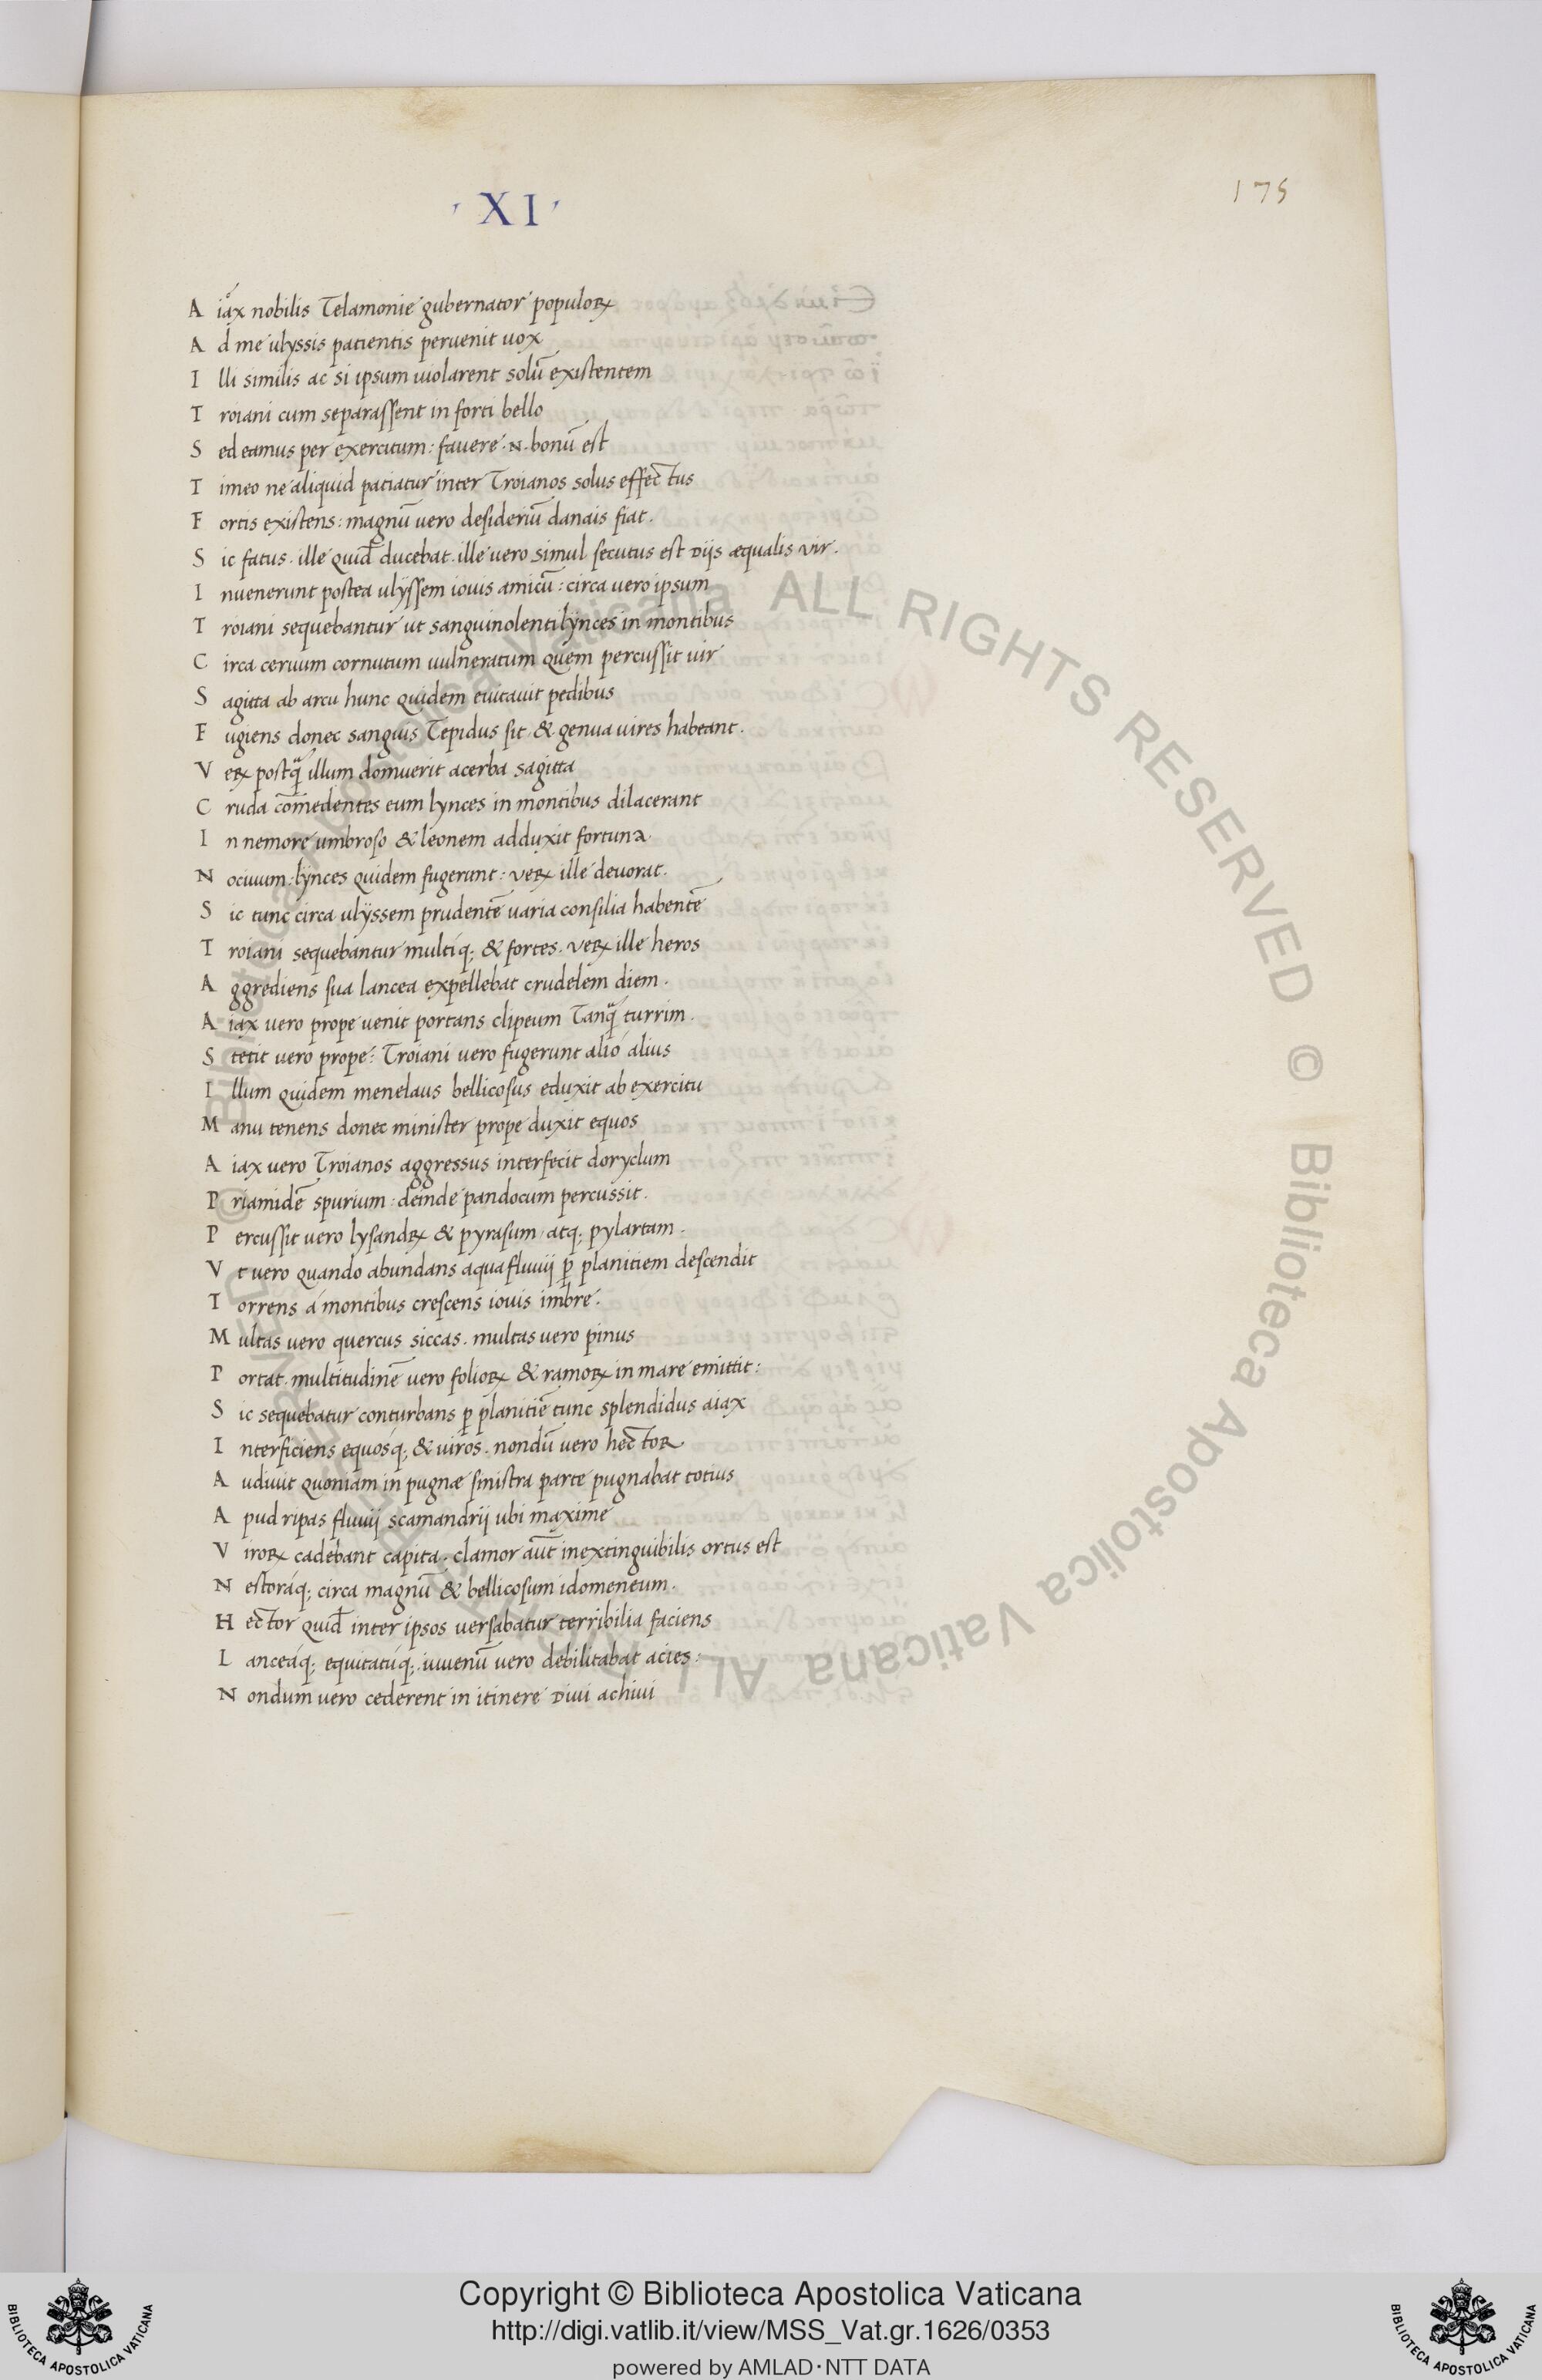 · XI ·
175
Aiax nobilis Telamonie gubernator populoꝝ
Ad me ulyssis patientis peruenit uox
Illi similis ac si ipsum uiolarent solũ existentem
Troiani cum separassent in forti bello
Sed eamus per exercitum: fauere .N. bonũ est
Timeo ne aliquid patiatur inter Troianos solus effectus
Fortis existens: magnũ uero desideriũ danais fiat.
Sic fatus. ille quid̃ ducebat. ille uero simul secutus est Diis æqualis vir.
Inuenerunt postea ulyssem iouis amicũ: circa uero ipsum
Troiani sequebantur ut sanguinolenti lynces in montibus
Circa ceruum cornutum uulneratum quem percussit uir
Sagitta ab arcu hunc quidem euitauit pedibus
Fugiens donec sanguis Tepidus sit & genua uires habeant.
Veꝝ postq̃ illum domuerit acerba sagitta
Cruda com̃edentes eum lynces in montibus dilacerant
In nemore umbroso & leonem adduxit fortuna.
Nociuum: lynces quidem fugerunt: veꝝ ille deuorat.
Sic tunc circa ulyssem prudentẽ uaria consilia habentẽ
Troiani sequebantur multiq; & fortes. veꝝ ille heros
Aggrediens sua lancea expellebat crudelem diem.
Aiax uero prope uenit portans clipeum Tanq̃ turrim.
Stetit uero prope: Troiani uero fugerunt alio alius
Illum quidem menelaus bellicosus eduxit ab exercitu
Manu tenens donec minister prope duxit equos
Aiax uero Troianos aggressus interfecit doryclum
Priamidẽ spurium: deinde pandocum percussit.
Percussit uero lysandꝝ & pyrasum. atq; pylartam.
Vt uero quando abundans aqua fluuij p̱ planitiem descendit
Torrens á montibus crescens iouis imbre.
Multas uero quercus siccas. multas uero pinus
Portat. multitudinẽ uero folioꝝ & ramoꝝ in mare emittit:
Sic sequebatur conturbans p̱ planitiẽ tunc splendidus aiax
Interficiens equosq; & uiros. nondũ uero hector
Audiuit quoniam in pugnæ sinistra parte pugnabat totius
Apud ripas fluuij scamandrij ubi maxime
Viroꝝ cadebant capita. clamor aut̃ inextinguibilis ortus est
Nestoráq; circa magnũ & bellicosum idomeneum.
Hector quid̃ inter ipsos uersabatur terribilia faciens
Lanceáq; equitatúq; iuuenũ uero debilitabat acies:
Nondum uero cederent in itinere Diui achiui
© Biblioteca Apostolica Vaticana ALL RIGHTS RESERVED © Biblioteca Apostolica Vaticana ALL RIGHTS RESERVED
BIBLIOTECA APOSTOLICA VATICANA
Copyright © Biblioteca Apostolica Vaticana
http://digi.vatlib.it/view/MSS_Vat.gr.1626/0353
powered by AMLAD·NTT DATA
BIBLIOTECA APOSTOLICA VATICANA